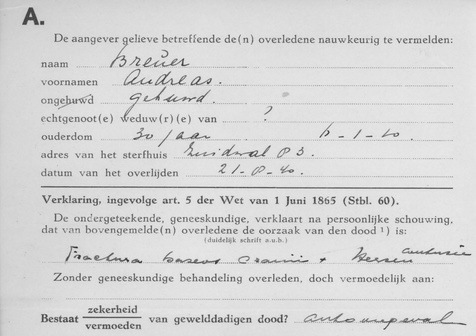 A.
De aangever gelieve betreffende de(n) overledene nauwkeurig te vermelden:
naam Breuer
voornamen Andreas.
ongehuwd gehuwd.
echtgenoot(e) weduw(r)(e) van ?
ouderdom 30 jaar 6-1-10
adres van het sterfhuis Zuidwal 83.
datum van het overlijden 21-8-40.
Verklaring, ingevolge art. 5 der Wet van 1 Juni 1865 (Stbl. 60).
De ondergeteekende, geneeskundige, verklaart na persoonlijke schouwing,
dat van bovengemelde(n) overledene de oorzaak van den dood ¹) is:
(duidelijk schrift a.u.b.)
Fractura baseos Cranii + Hersencontusie
Zonder geneeskundige behandeling overleden, doch vermoedelijk aan:
Bestaat zekerheid
vermoeden van gewelddadigen dood? auto ongeval